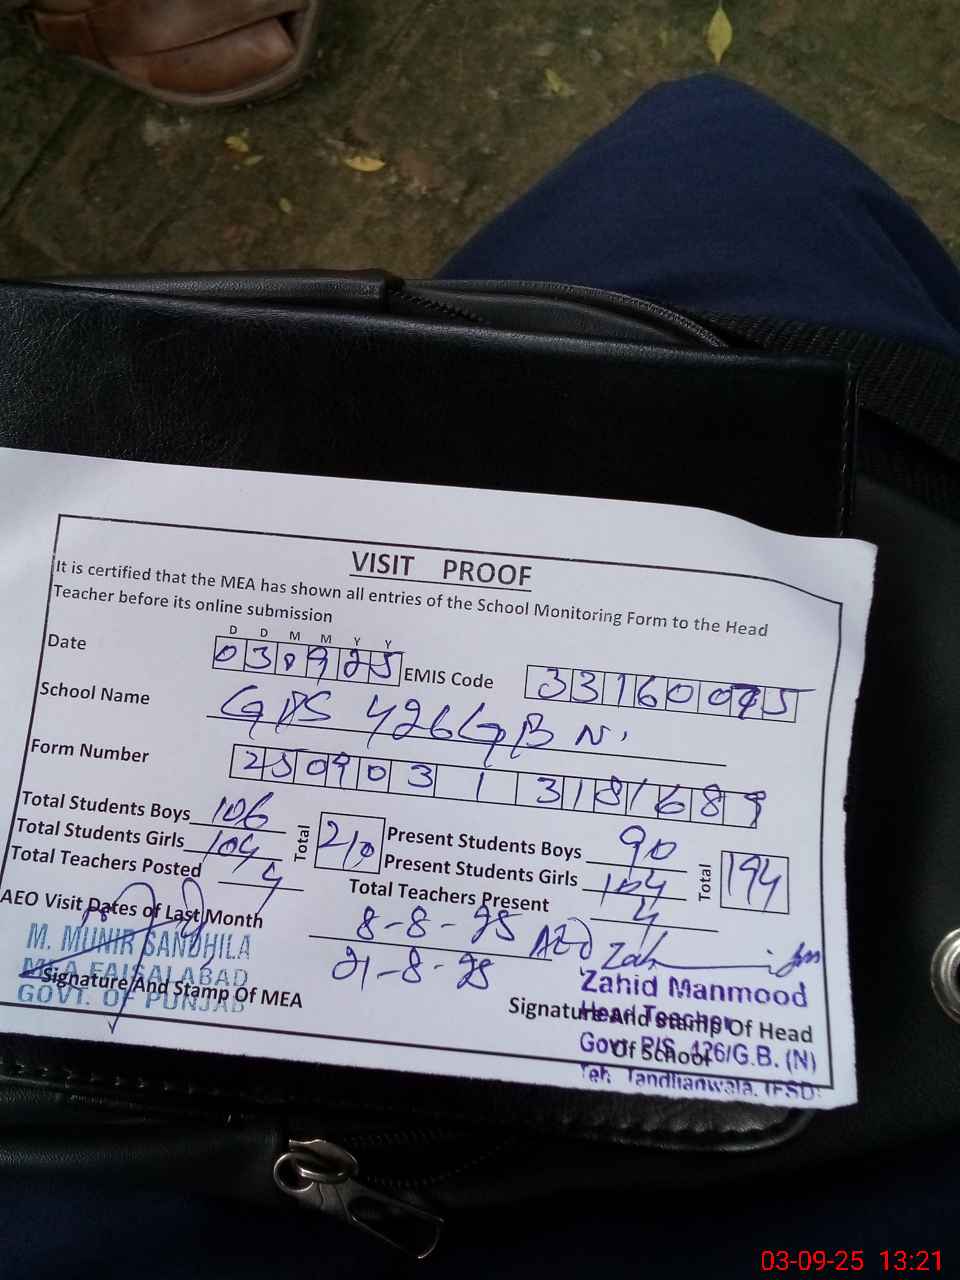 VISIT PROOF
It is certified that the MEA has shown all entries of the School Monitoring Form to the Head
Teacher before its online submission
D D M M Y Y
Date 030925 EMIS Code 33160075
School Name GPS 426GB N.
Form Number 250903 1 3181689
Total Students Boys 106 Total 210 Present Students Boys 90 Total 194
Total Students Girls 104 Present Students Girls 104
Total Teachers Posted 4 Total Teachers Present 4
AEO Visit Dates of Last Month 8-8-25 AEO
21-8-25
M. MUNIR SANDHILA
MEA FAISALABAD
GOVT. OF PUNJAB
Signature And Stamp Of MEA
Zahid Manmood
Head Teacher
Govt. P/S. 426/G.B. (N)
Teh. Tandlianwala. (FSD)
Signature And Stamp Of Head
Of School
03-09-25 13:21